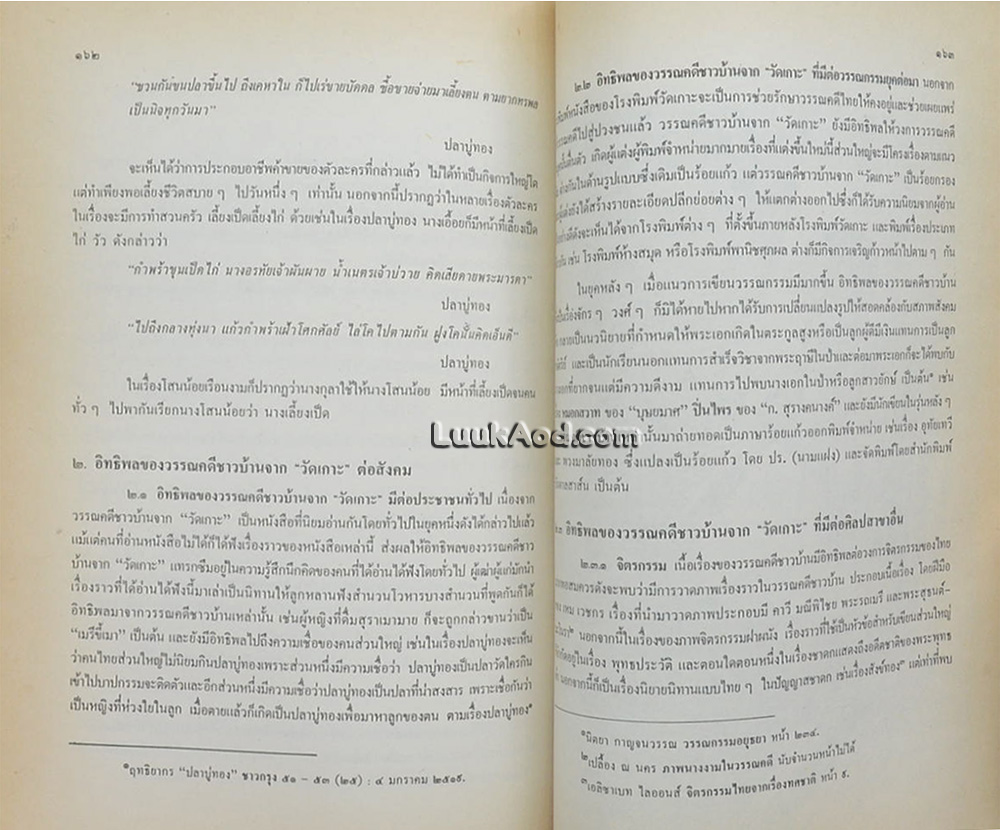 ๑๖๒
“ชวนกันขนปลาขึ้นไป ถึงเคหาใน ก็ไปเร่ขายบัดดล ซื้อขายจ่ายมาเลี้ยงตน ตามยากทรพล
เป็นนิจทุกวันมา”
ปลาบู่ทอง
จะเห็นได้ว่าการประกอบอาชีพค้าขายของตัวละครที่กล่าวแล้ว ไม่ได้ทำเป็นกิจการใหญ่โต
แต่ทำเพียงพอเลี้ยงชีวิตสบาย ๆ ไปวันหนึ่ง ๆ เท่านั้น นอกจากนี้ปรากฏว่าในหลายเรื่องตัวละคร
ในเรื่องจะมีการทำสวนครัว เลี้ยงเป็ดเลี้ยงไก่ ด้วยเช่นในเรื่องปลาบู่ทอง นางเอื้อยก็มีหน้าที่เลี้ยงเป็ด
ไก่ วัว ดังกล่าวว่า
“กำพร้าขุนเป็ดไก่ นางอรทัยเจ้าผันผาย น้ำเนตรเจ้าบ่วาย คิดเสียดายพระมารดา”
ปลาบู่ทอง
“ไปถึงกลางทุ่งนา แก้วกำพร้าเฝ้าโศกศัลย์ ไล่โคไปตามกัน ฝูงโคนั้นคิดเอ็นดี”
ปลาบู่ทอง
ในเรื่องโสนน้อยเรือนงามก็ปรากฏว่านางกุลาใช้ให้นางโสนน้อย มีหน้าที่เลี้ยงเป็ดจนคน
ทั่ว ๆ ไปพากันเรียกนางโสนน้อยว่า นางเลี้ยงเป็ด
๒. อิทธิพลของวรรณคดีชาวบ้านจาก “วัดเกาะ” ต่อสังคม
๒.๑ อิทธิพลของวรรณคดีชาวบ้านจาก “วัดเกาะ” มีต่อประชาชนทั่วไป เนื่องจาก
วรรณคดีชาวบ้านจาก “วัดเกาะ” เป็นหนังสือที่นิยมอ่านกันโดยทั่วไปในยุคหนึ่งดังได้กล่าวไปแล้ว
แม้แต่คนที่อ่านหนังสือไม่ได้ก็ได้ฟังเรื่องราวของหนังสือเหล่านี้ ส่งผลให้อิทธิพลของวรรณคดีชาว
บ้านจาก “วัดเกาะ” แทรกซึมอยู่ในความรู้สึกนึกคิดของคนที่ได้อ่านได้ฟังโดยทั่วไป ผู้เฒ่าผู้แก่มักนำ
เรื่องราวที่ได้อ่านได้ฟังนี้มาเล่าเป็นนิทานให้ลูกหลานฟังสำนวนโวหารบางสำนวนที่พูดกันก็ได้
อิทธิพลมาจากวรรณคดีชาวบ้านเหล่านั้น เช่นผู้หญิงที่ดื่มสุราเมามาย ก็จะถูกกล่าวขานว่าเป็น
“เมรีขี้เมา” เป็นต้น และยังมีอิทธิพลไปถึงความเชื่อของคนส่วนใหญ่ เช่นในเรื่องปลาบู่ทองจะเห็น
ว่าคนไทยส่วนใหญ่ไม่นิยมกินปลาบู่ทองเพราะส่วนหนึ่งมีความเชื่อว่า ปลาบู่ทองเป็นปลาวัดใครกิน
เข้าไปบาปกรรมจะติดตัวและอีกส่วนหนึ่งมีความเชื่อว่าปลาบู่ทองเป็นปลาที่น่าสงสาร เพราะเชื่อกันว่า
เป็นหญิงที่ห่วงใยในลูก เมื่อตายแล้วก็เกิดเป็นปลาบู่ทองเพื่อมาหาลูกของตน ตามเรื่องปลาบู่ทอง๑
๑ฤทธิยากร “ปลาบู่ทอง” ชาวกรุง ๕๑ – ๕๓ (๒๕) : ๔ มกราคม ๒๕๑๙.
๑๖๓
๒.๒ อิทธิพลของวรรณคดีชาวบ้านจาก “วัดเกาะ” ที่มีต่อวรรณกรรมยุคต่อมา นอกจาก
พิมพ์หนังสือของโรงพิมพ์วัดเกาะจะเป็นการช่วยรักษาวรรณคดีไทยให้คงอยู่และช่วยเผยแพร่
วรรณคดีไปสู่ปวงชนแล้ว วรรณคดีชาวบ้านจาก “วัดเกาะ” ยังมีอิทธิพลให้วงการวรรณคดี
ตื่นตัว เกิดผู้แต่งผู้พิมพ์จำหน่ายมากมายเรื่องที่แต่งขึ้นใหม่นี้ส่วนใหญ่จะมีโครงเรื่องตามแนว
ต่างกันในด้านรูปแบบซึ่งเดิมเป็นร้อยแก้ว แต่วรรณคดีชาวบ้านจาก “วัดเกาะ” เป็นร้อยกรอง
ผู้แต่งยังได้สร้างรายละเอียดปลีกย่อยต่าง ๆ ให้แตกต่างออกไปซึ่งก็ได้รับความนิยมจากผู้อ่าน
อย่างดีดังจะเห็นได้จากโรงพิมพ์ต่าง ๆ ที่ตั้งขึ้นภายหลังโรงพิมพ์วัดเกาะ และพิมพ์เรื่องประเภท
เช่น โรงพิมพ์ห้างสมุด หรือโรงพิมพ์พานิชศุภผล ต่างก็มีกิจการเจริญก้าวหน้าไปตาม ๆ กัน
ในยุคหลัง ๆ เมื่อแนวการเขียนวรรณกรรมมีมากขึ้น อิทธิพลของวรรณคดีชาวบ้าน
เป็นเรื่องจักร ๆ วงศ์ ๆ ก็มิได้หายไปหากได้รับการเปลี่ยนแปลงรูปให้สอดคล้องกับสภาพสังคม
กลายเป็นนวนิยายที่กำหนดให้พระเอกเกิดในตระกูลสูงหรือเป็นลูกผู้ดีมีเงินแทนการเป็นลูก
และเป็นนักเรียนนอกแทนการสำเร็จวิชาจากพระฤาษีในป่าและต่อมาพระเอกก็จะได้พบกับ
นางเอกที่ยากจนแต่มีความดีงาม แทนการไปพบนางเอกในป่าหรือลูกสาวยักษ์ เป็นต้น๑ เช่น
หมอกสวาท ของ “บุษยมาศ” ปิ่นไพร ของ “ก. สุรางคนางค์” และยังมีนักเขียนในรุ่นหลัง ๆ
นั้นมาถ่ายทอดเป็นภาษาร้อยแก้วออกพิมพ์จำหน่าย เช่นเรื่อง อุทัยเทวี
และ พวงมาลัยทอง ซึ่งแปลงเป็นร้อยแก้ว โดย ปร. (นามแฝง) และจัดพิมพ์โดยสำนักพิมพ์
เป็นต้น
อิทธิพลของวรรณคดีชาวบ้านจาก “วัดเกาะ” ที่มีต่อศิลปสาขาอื่น
๒.๓.๑ จิตรกรรม เนื้อเรื่องของวรรณคดีชาวบ้านมีอิทธิพลต่อวงการจิตรกรรมของไทย
ดังจะพบว่ามีการวาดภาพเรื่องราวในวรรณคดีชาวบ้าน ประกอบเนื้อเรื่อง โดยฝีมือ
เหม เวชกร เรื่องที่นำมาวาดภาพประกอบมี คาวี มณีพิไชย พระรถเมรี และพระสุธนต์–
นอกจากนี้ในเรื่องของภาพจิตรกรรมฝาผนัง เรื่องราวที่ใช้เป็นหัวข้อสำหรับเขียนส่วนใหญ่
อยู่ในเรื่อง พุทธประวัติ และตอนใดตอนหนึ่งในเรื่องชาดกแสดงถึงอดีตชาติของพระพุทธ
นอกจากนี้ก็เป็นเรื่องนิยายนิทานแบบไทย ๆ ในปัญญาสชาดก เช่นเรื่องสังข์ทอง๓ แต่เท่าที่พบ
๑นิตยา กาญจนวรรณ วรรณกรรมอยุธยา หน้า ๒๓๔.
๒เปลื้อง ณ นคร ภาพนางงามในวรรณคดี นับจำนวนหน้าไม่ได้
๓เอลิซาเบท ไลออนส์ จิตรกรรมไทยจากเรื่องทศชาติ หน้า ๙.
LuukAod.com